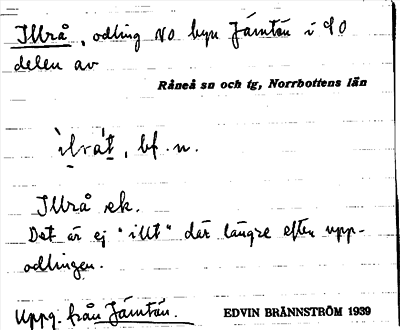 Illrå, odling NO byn Jämtön i SO
delen av
Råneå sn och tg, Norrbottens län
ìlråt, bf. n.
Illrå ek.
Det är ej "illt" där längre efter upp-
odlingen.
Uppg. från Jämtön.
EDVIN BRÄNNSTRÖM 1939